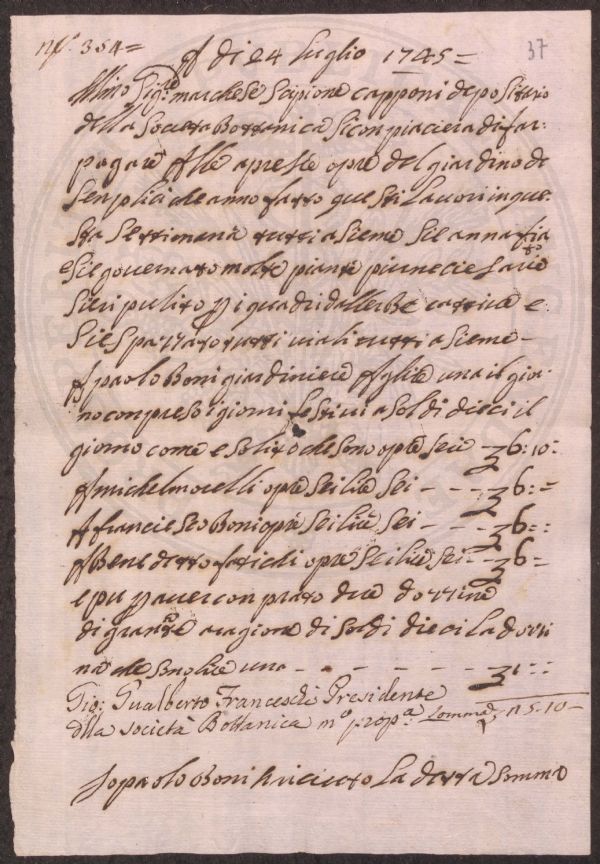 n.º 354=
A di 24 luglio 1745=
37
Ill.mo Sig.re marchese Scipione capponi depositario
della Società Bottanica Si conpiacierà di far
pagare Alle apreste opre del giardino de
Senplici che anno fatto questi Lavori in que
sta Settimana tutti a Sieme Si è annafiato
e Si è governato molte piante più necie Sarie
Si è ripulito p i quadri dalle erbe cattive e
Si è Spazzato tutti i viali tutti a Sieme –
A paolo Boni giardiniere A glire una il gior
no conpreso i giorni festivi a Soldi dieci il
giorno come è Solito che sono opre Seie – 6:10:
A michel mocelli opre Sei lire Sei - - - 6:=
A franciesco Boni opre Sei lire Sei - - - 6=:
A Benedetto fatichi opre Sei lire Sei - 6=
e più p aver conprato due dozzine
di granate a ragione di Soldi dieci la dozzi
na che sono lire una - - - - - - 1::
Gio: Gualberto Franceschi Presidente
della Società Bottanica m.º prop.ª Somma 25.10–
Io paolo Boni ho riceuto La detta Somma